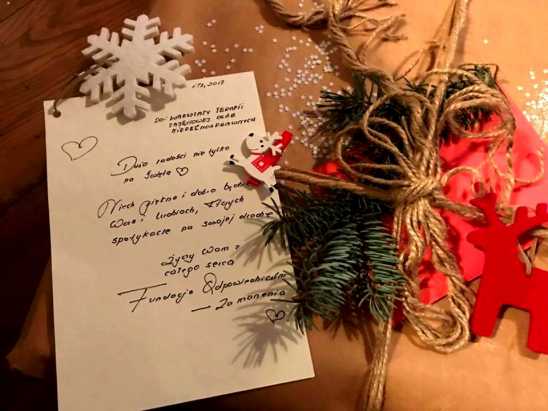 2017
DO WARSZTATY TERAPII
ZAJĘCIOWEJ DLA
NIEPEŁNOSPRAWNYCH
Dużo radości nie tylko
na Święta
Niech piękno i dobro będą
Was i ludziach, których
spotykacie na swojej drodze
Życzy Wam z
całego serca
Fundacja Odpowiedzialni
— Za marzenia